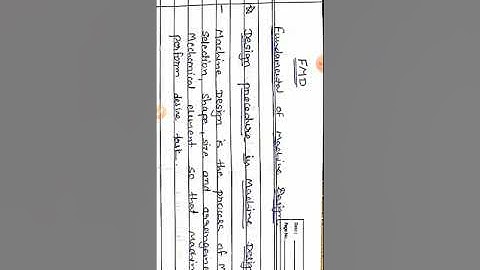 FMD
Fundamental of Machine Design
Date :
Page No.
Design procedure in Machine Desig
- Machine Design is the process of M
selection, shape, size and arrangeme
Mechanical element so that machin
perform desire task.